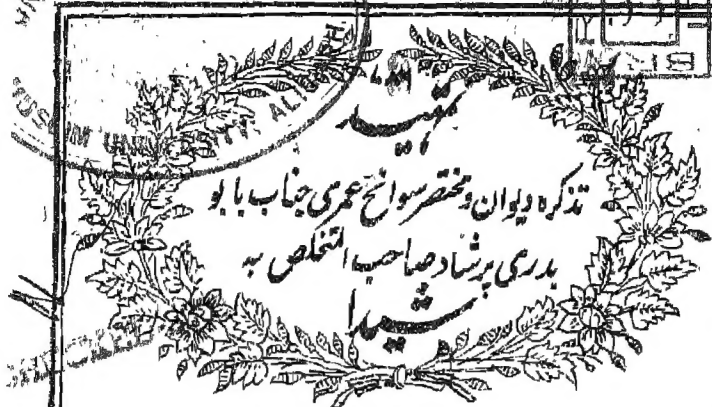 MUSLIM UNIVERSITY ALIGARH.
تمہید
تذکرہ دیوان و مختصر سوانح عمری جناب بابو
بدری پرشاد صاحب المتخلص بہ
شیدا